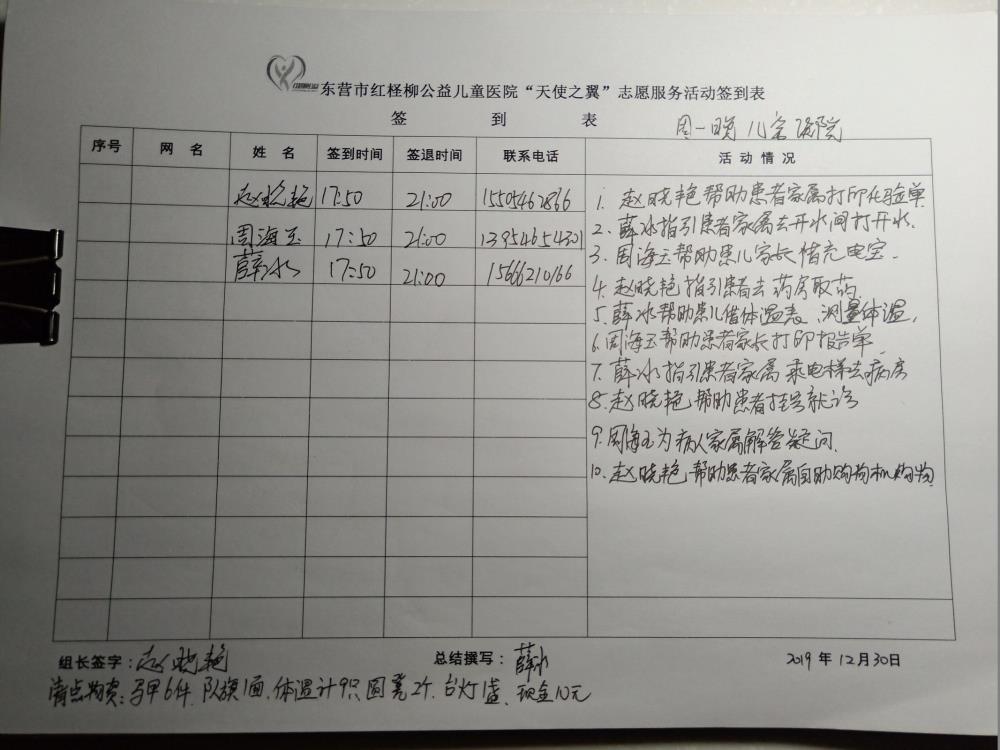 东营市红柽柳公益儿童医院“天使之翼”志愿服务活动签到表
签 到 表
周一晚 儿童医院
序号 网 名 姓 名 签到时间 签退时间 联系电话 活 动 情 况
赵晓艳 17:50 21:00 15505462866
周海玉 17:50 21:00 13954654301
薛冰 17:50 21:00 15666210166
1. 赵晓艳帮助患者家属打印化验单
2. 薛冰指引患者家属去开水间打开水.
3. 周海玉帮助患儿家长借充电宝.
4. 赵晓艳指引患者去药房取药.
5. 薛冰帮助患儿借体温表、测量体温,
6. 周海玉帮助患者家长打印报告单
7. 薛冰指引患者家属乘电梯去病房
8. 赵晓艳帮助患者挂号就诊
9. 周海玉为病人家属解答疑问.
10. 赵晓艳帮助患者家属自助购物机购物.
组长签字:赵晓艳 总结撰写:薛冰 2019年12月30日
清点物资:马甲6件.队旗1面.体温计9只.圆凳2个.台灯1盏、现金10元